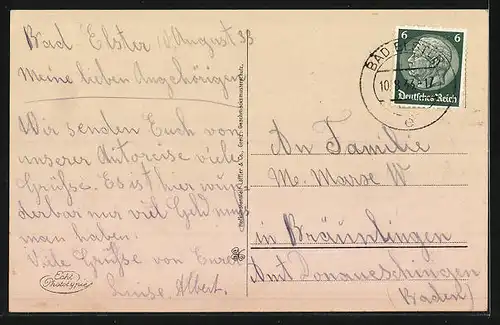 Bad Elster 10. August 33
Meine lieben Angehörigen
Wir senden Euch von
unserer Autoreise viele
Grüsse. Es ist hier wun
derbar nur viel Geld muss
man haben.
Viele Grüsse von Eure
Luise, Albert.
Echt
Phototypie
Gem. Geschmacksmusterschutz.
BAD ELSTER
6 6
Deutsches Reich
An Familie
M. Marse W
in Bräunlingen
Amt Donaueschingen
(Baden)